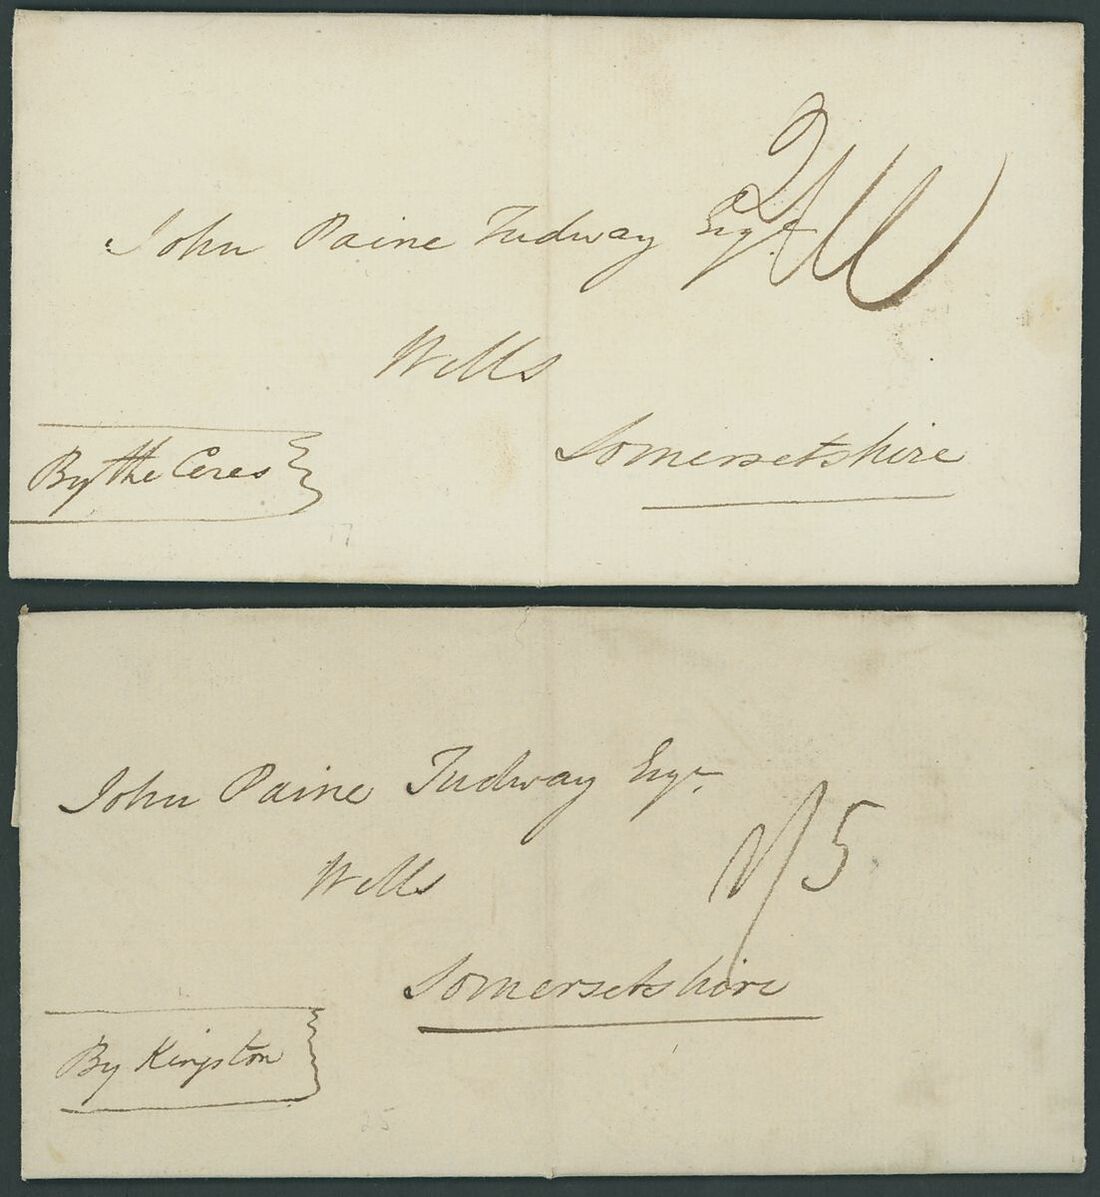 John Paine Tudway Esqr.
Wells
Somersetshire
By the Ceres
17
John Paine Tudway Esqr.
1/5
Wells
Somersetshire
By Kingston
25